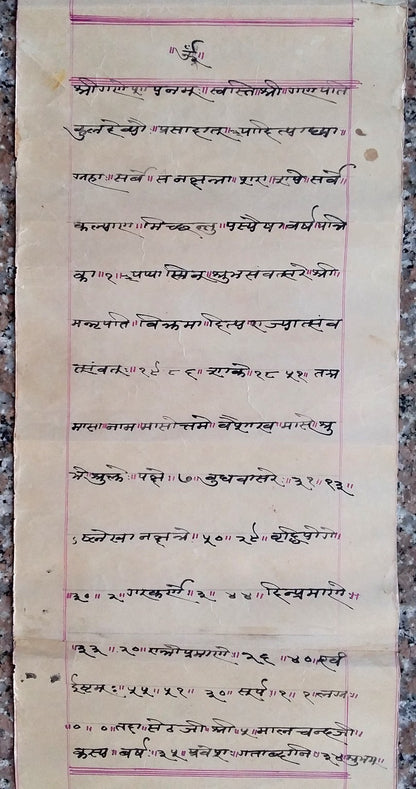 ॥ॐ॥
श्रीगणेशायनमः॥स्वस्तिश्री॥गणपति
कुलदेव्यो॥प्रसादात्॥आदित्याद्या॥
ग्रहाः॥सर्वे॥सनक्षत्रा॥राशयः॥सर्वे॥
कल्याण॥मिच्छन्तु॥यस्यैषा॥वर्षपत्री
का॥१॥अथास्मिन्॥शुभसंवत्सरे॥श्री
मन्नृपति॥विक्रमादित्य॥राज्यात्संव
त्संवत्॥१९८६॥शाके॥१८५१॥तत्र
मासानाम॥मासोत्तमे॥वैशाख॥मासे॥शु
भे॥शुक्ले॥पक्षे॥७॥बुधवासरे॥३१॥१३॥
ऽष्लेखा नक्षत्रे॥५०॥२९॥वृद्धियोगे॥
॥३०॥२॥गरकर्णे॥३॥४४॥दिनप्रमाणे॥
॥३३॥२०॥रात्रीप्रमाणे॥२६॥४०॥एवं
ईष्टमः॥५५॥५१॥३०॥सूर्य॥१॥१॥लग्न॥
॥०॥०॥तत्रा॥सेठजी॥श्री॥५॥मालचन्दजी॥
कस्य॥वर्ष॥३५॥प्रवेश॥गताब्दानि॥३४॥शुभम्॥